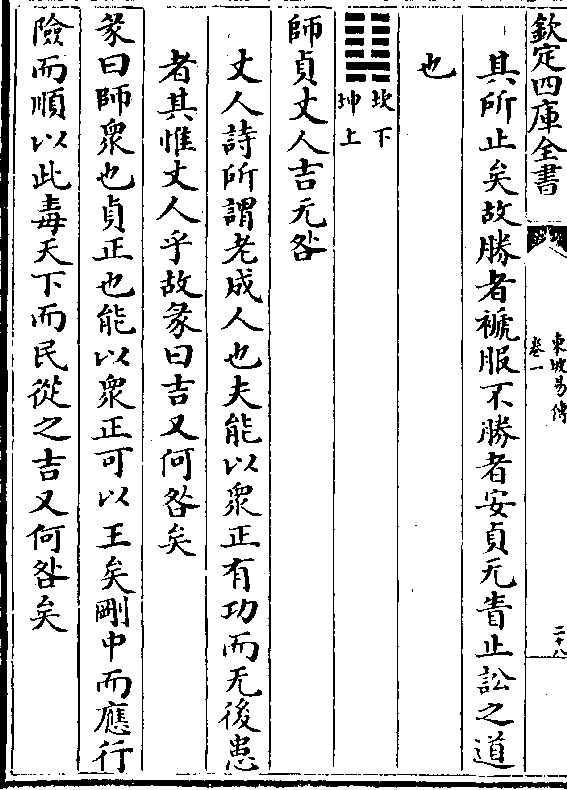 欽定四庫全書
東坡易傳
卷一
二十八
其所止矣故勝者褫服不勝者安貞元眚止訟之道
也
坎下
坤上
師貞丈人吉无咎
丈人詩所謂老成人也夫能以衆正有功而无後患
者其惟丈人乎故彖曰吉又何咎矣
彖曰師衆也貞正也能以衆正可以王矣剛中而應行
險而順以此毒天下而民從之吉又何咎矣